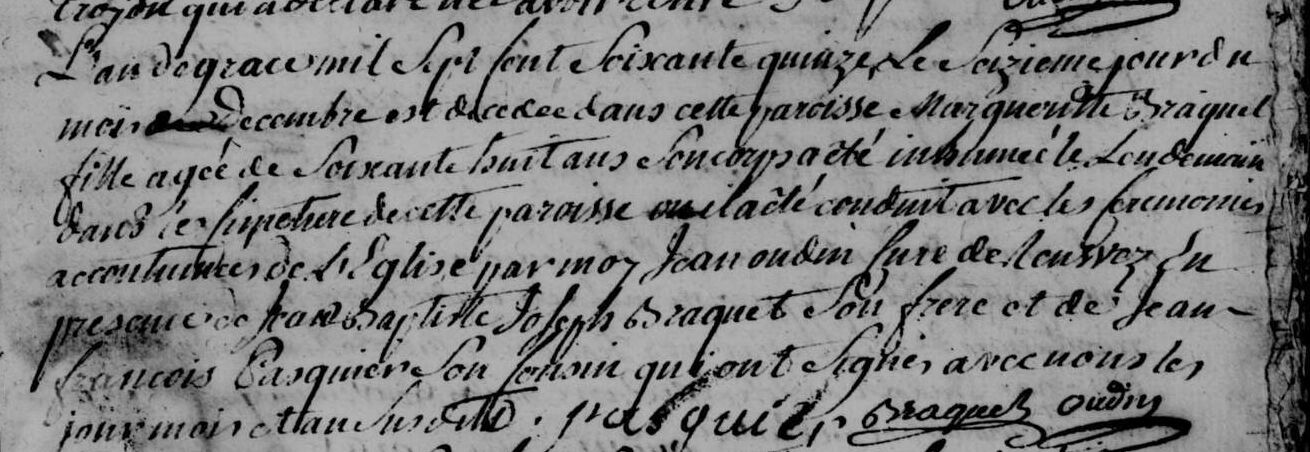 troyon qui a declaré ne avoir
L'an de grace mil Sept Cent Soixante quinze Le Seizieme jour du
mois Decembre est decedee dans cette paroisse Margueritte Braquet
fille agée de Soixante huit ans Son corps a été inhumé le Lendemain
dans le cimetiere de cette paroisse ou il a été conduit avec les ceremonies
accoutumées de L'Eglise par moy Jean oudin Curé de En
presence de Jean Baptiste Joseph Braquet Son frere et de Jean-
francois Pasquier Son Cousin qui ont Signés avec nous les
jour mois et an Susdit. pasquier Braquet oudin